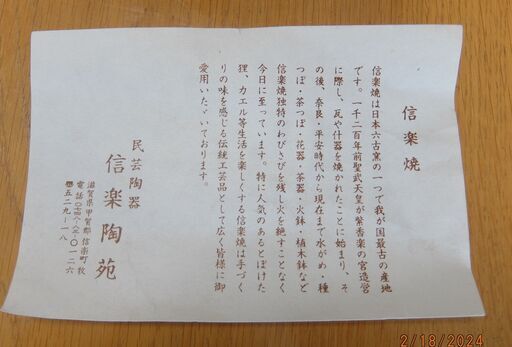 信楽焼
信楽焼は日本六古窯の一つで我が国最古の産地
です。一千二百年前聖武天皇が紫香楽の宮造営
に際し、瓦や什器を焼かれたことに始まり、そ
の後、奈良・平安時代から現在まで水がめ・種
つぼ・茶つぼ・花器・茶器・火鉢・植木鉢など
信楽焼独特のわびさびを残し火を絶すことなく
今日に至っています。特に人気のあるとぼけた
狸、カエル等生活を楽しくする信楽焼は手づく
りの味を感じる伝統工芸品として広く皆様に御
愛用いたゞいております。
民芸陶器
信楽陶苑
滋賀県甲賀郡信楽町牧
電話(〇七四八)八三-〇一二六
〒五二九-一八
2/18/2024